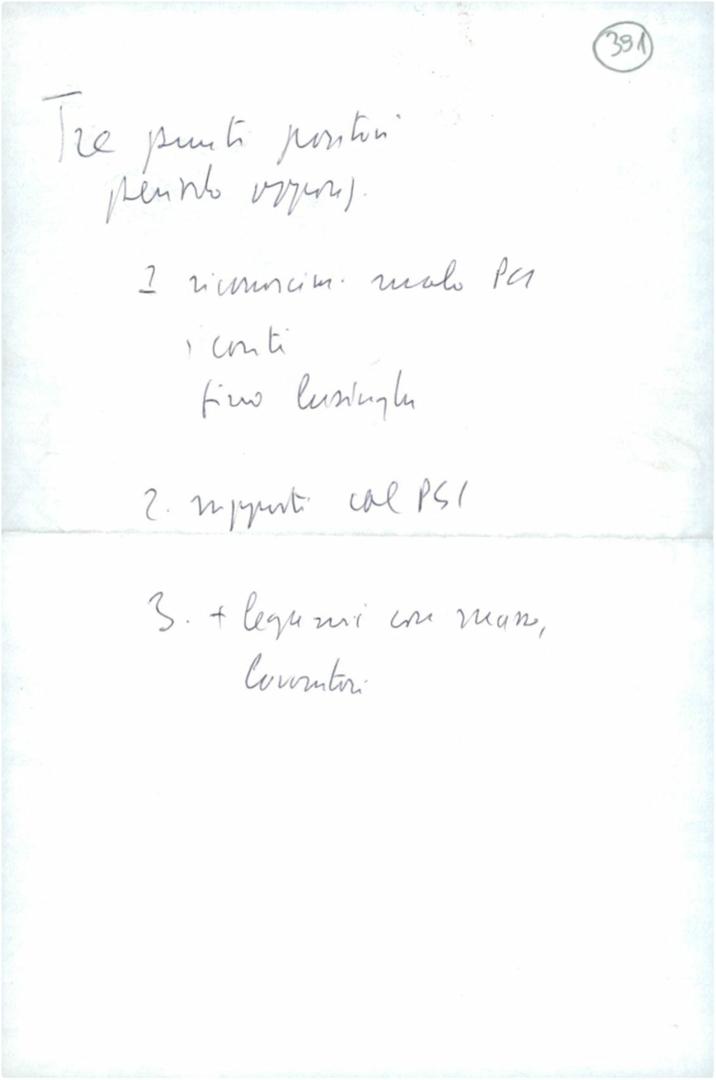 391
Tre punti positivi
periodo oppos.
1 riconoscim. ruolo PCI
i conti
fino lusinghe
2. rapporti col PSI
3. + legami con masse,
lavoratori